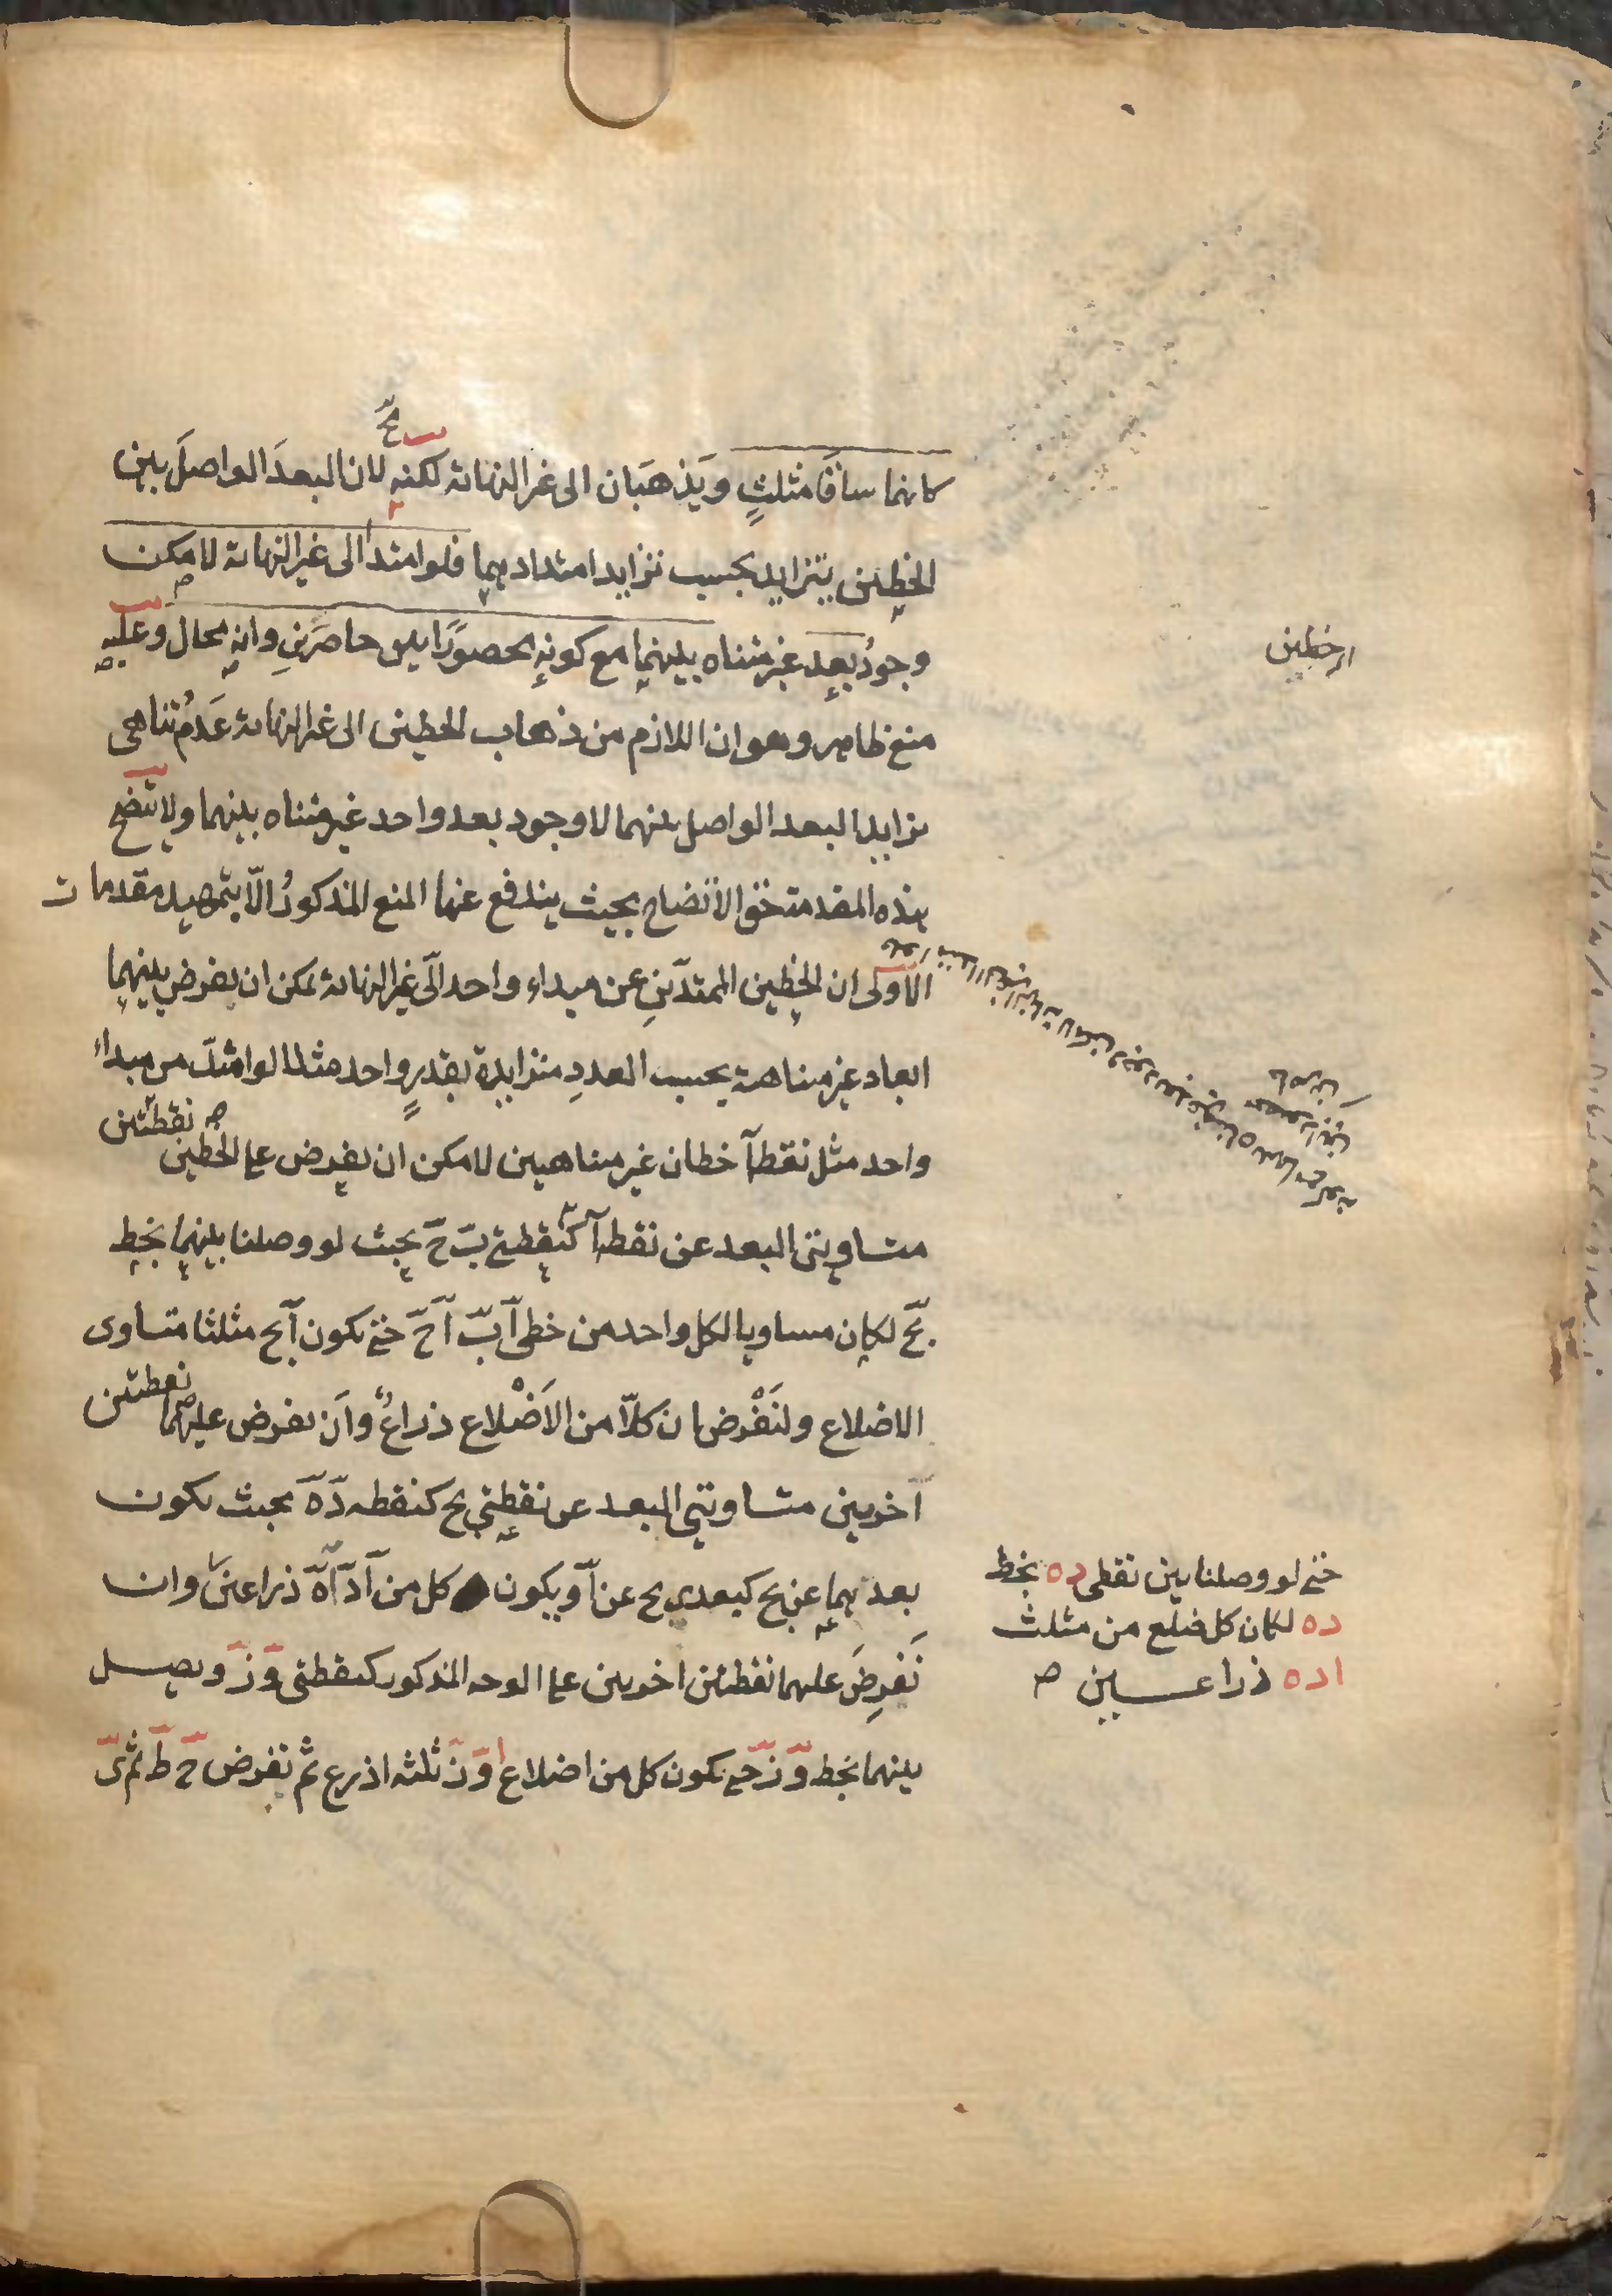 كانهما ساقَا مثلثٍ ويَذهبَان الى غير النهاية لكنه لان البعدَ الواصلَ بين
الخطين يتزايد بحسب تزايد امتدادهما فلو امتدا الى غير النهاية لامكن
وجودُ بعدٍ غير متناه بينهما مع كونه محصورًا بين حاصرَينِ وانه محال وعليه
منع ظاهر وهو ان اللازم من ذهاب الخطين الى غير النهاية عَدمُ تناهى
تزايد البعد الواصل بينهما لا وجود بعد واحد غير متناه بينهما ولا تتضح
هذه المقدمة حق الاتضاح بحيث يندفع عنها المنع المذكورُ الّا بتمهيد مقدمات
الاولى ان الخطين الممتدّينِ عن مبداء واحد الى غير النهاية يمكن ان يفرض بينهما
ابعاد غير متناهية بحسب العددِ متزايدة بقدرٍ واحد مثلا لو امتدّ من مبداء
واحد مثل نقطة آ خطان غير متناهيين لامكن ان يفرض على الخطين نقطتين
متساويتى البعد عن نقطة آ كنقطتى بَ حَ بحيث لو وصلنا بينهما بخط
بح لكان مساويا لكل واحد من خطى آ بَ آ حَ حتى يكون آبح مثلثا متساوى
الاضلاع ولنَفْرض ان كلّا من الاَضْلاع ذراعٌ وان نفرض عليهما نقطتين
آخريين متساويتى البعد عن نقطتى بح كنقطة دَ هَ بحيث يكون
بعدهما عن بح كبعدى بح عن آ ويكون كل من آدَ آهَ ذراعين وان
نَفرِضَ عليهما نقطتين اخريين على الوجه المذكور كنقطتى وَ زَ ويصل
بينهما بخط وَ زَ حتى يكون كل من اضلاع ا وَ زَ ثلثة اذرع ثم نفرض حَ طَ ثم ىَ
الخطين
فلو امتدا الى غير النهاية لامكن وجود بعد غير متناه بينهما مع كونه
محصورا بين
حاصرين
حتى لو وصلنا بين نقطى ده بخط
ده لكان كل ضلع من مثلث
اده ذراعين صح